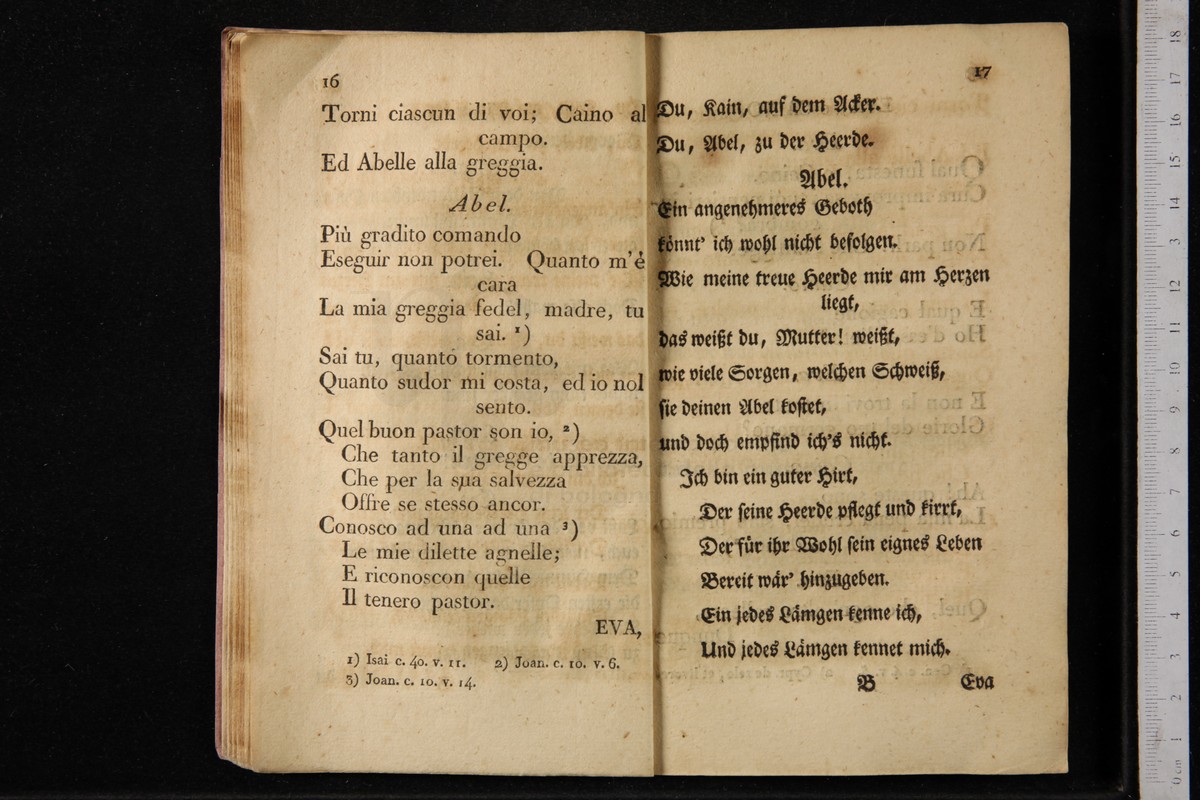 16
Torni ciascun di voi; Caino al
campo.
Ed Abelle alla greggia.
Abel.
Più gradito comando
Eseguir non potrei. Quanto m'è
cara
La mia greggia fedel, madre, tu
sai. 1)
Sai tu, quanto tormento,
Quanto sudor mi costa, ed io nol
sento.
Quel buon pastor son io, 2)
Che tanto il gregge apprezza,
Che per la sua salvezza
Offre se stesso ancor.
Conosco ad una ad una 3)
Le mie dilette agnelle;
E riconoscon quelle
Il tenero pastor.
EVA,
1) Isai c. 40. v. 11. 2) Joan. c. 10. v. 6.
3) Joan. c. 10. v. 14.
17
Du, Kain, auf dem Acker.
Du, Abel, zu der Heerde.
Abel.
Ein angenehmeres Geboth
könnt' ich wohl nicht befolgen.
Wie meine treue Heerde mir am Herzen
liegt,
das weißt du, Mutter! weißt,
wie viele Sorgen, welchen Schweiß,
sie deinen Abel kostet,
und doch empfind ich's nicht.
Ich bin ein guter Hirt,
Der seine Heerde pflegt und kirrt,
Der für ihr Wohl sein eignes Leben
Bereit wär' hinzugeben.
Ein jedes Lämgen kenne ich,
Und jedes Lämgen kennet mich.
B Eva
0 cm 1 2 3 4 5 6 7 8 9 10 11 12 13 14 15 16 17 18